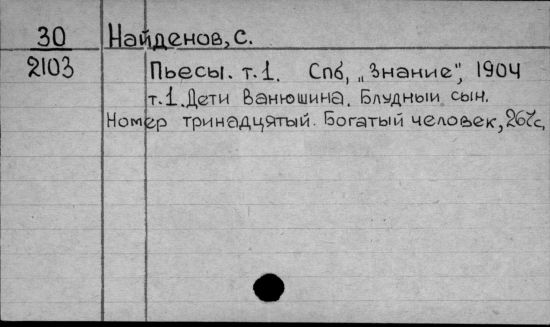 30
2103
Найденов, С.
Пьесы. т.1. Спб, „Знание", 1904
т.1. Дети Ванюшина. Блудный сын.
Номер тринадцятый. Богатый человек, 267с,